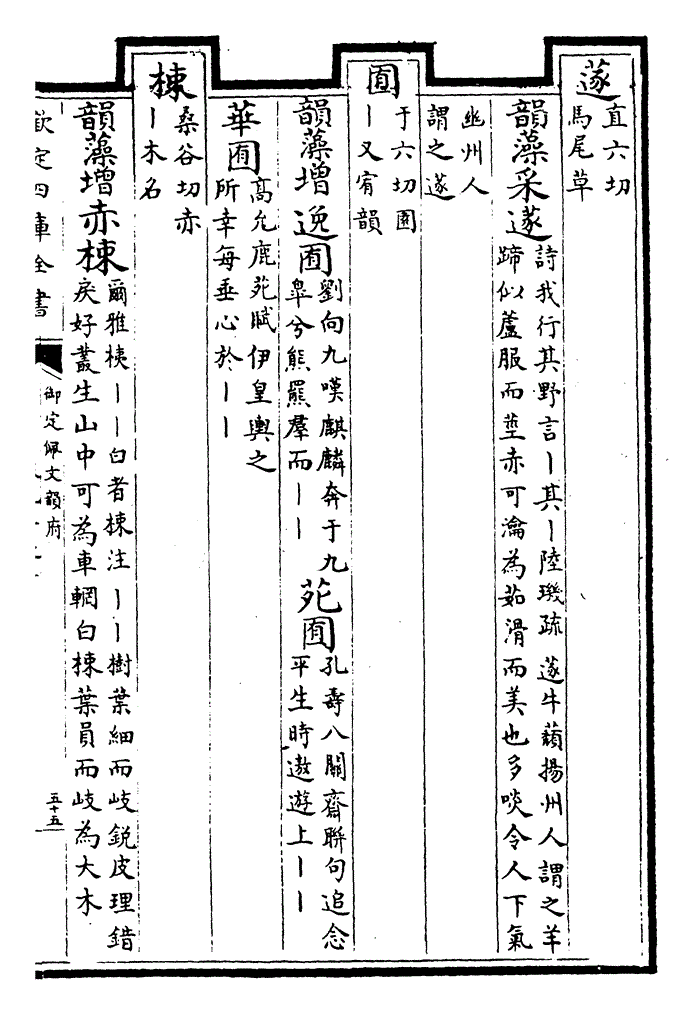 蓫直六切
馬尾草
韻藻采蓫詩我行其野言丨其丨陸璣疏蓫牛蘈揚州人謂之羊
蹄似蘆服而莖赤可瀹為茹滑而美也多啖令人下氣
幽州人
謂之蓫
囿于六切園
丨又宥韻
韻藻增逸囿劉向九嘆麒麟奔于九
皐兮熊羆羣而丨丨
苑囿孔壽八關齋聯句追念
平生時遨遊上丨丨
華囿高允鹿苑賦伊皇輿之
所幸每垂心於丨丨
梀桑谷切赤
丨木名
韻藻增赤梀爾雅桋丨丨白者梀注丨丨樹葉細而岐銳皮理錯
戾好叢生山中可為車輞白梀葉員而岐為大木
欽定四庫全書
御定佩文韻府
五十五